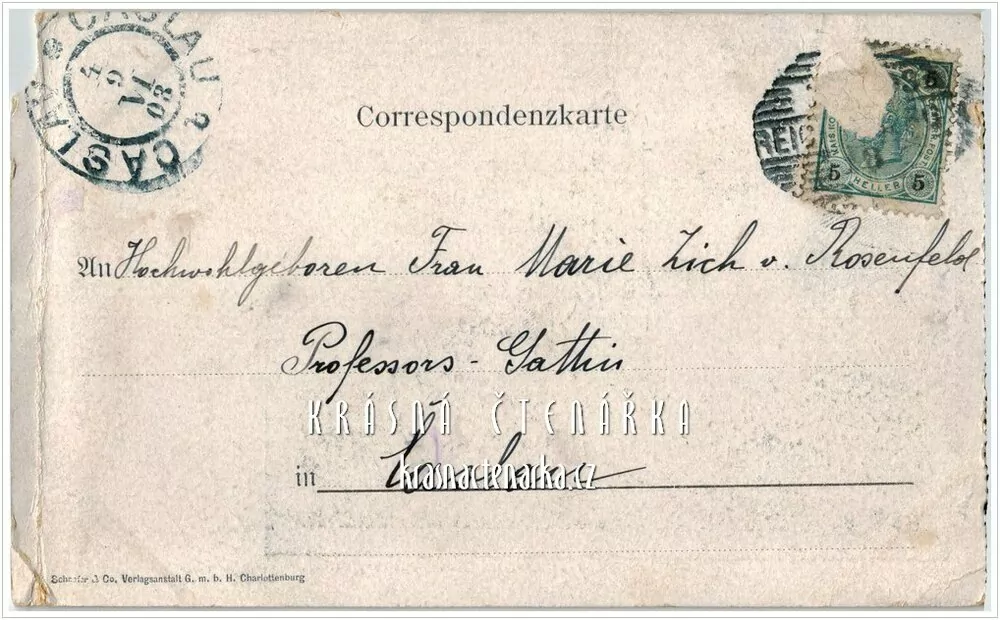 ČASLAU
ČÁSLAV
4
9
VI
03
Correspondenzkarte
REIC
5
5 HELLER 5
An Hochwohlgeboren Frau Marie Zich v. Rosenfeld
Professors-Gattin
KRÁSNÁ ČTENÁŘKA
in Časlau
krasnactenarka.cz
Schaefer & Co, Verlagsanstalt G. m. b. H. Charlottenburg